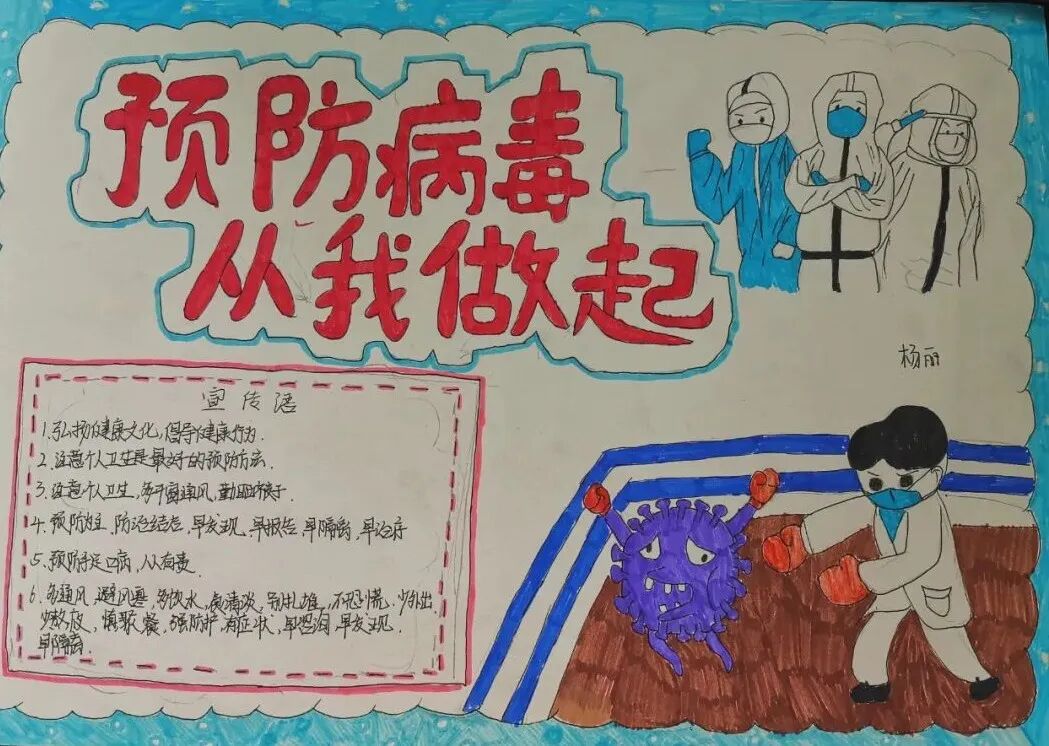 预防病毒
从我做起
杨丽
宣传语
1.弘扬健康文化,倡导健康行为.
2.注意个人卫生是最好的预防方法.
3.注意个人卫生,多开窗通风,勤晒被子.
4.预防为主,防治结合,早发现,早报告,早隔离,早治疗
5.预防手足口病,从有责.
6.多通风,避风寒,多饮水,食清淡,别扎堆,不恐慌,少外出
少散放,慎聚餐,强防护,有症状,早咨询,早发现.
早隔离.